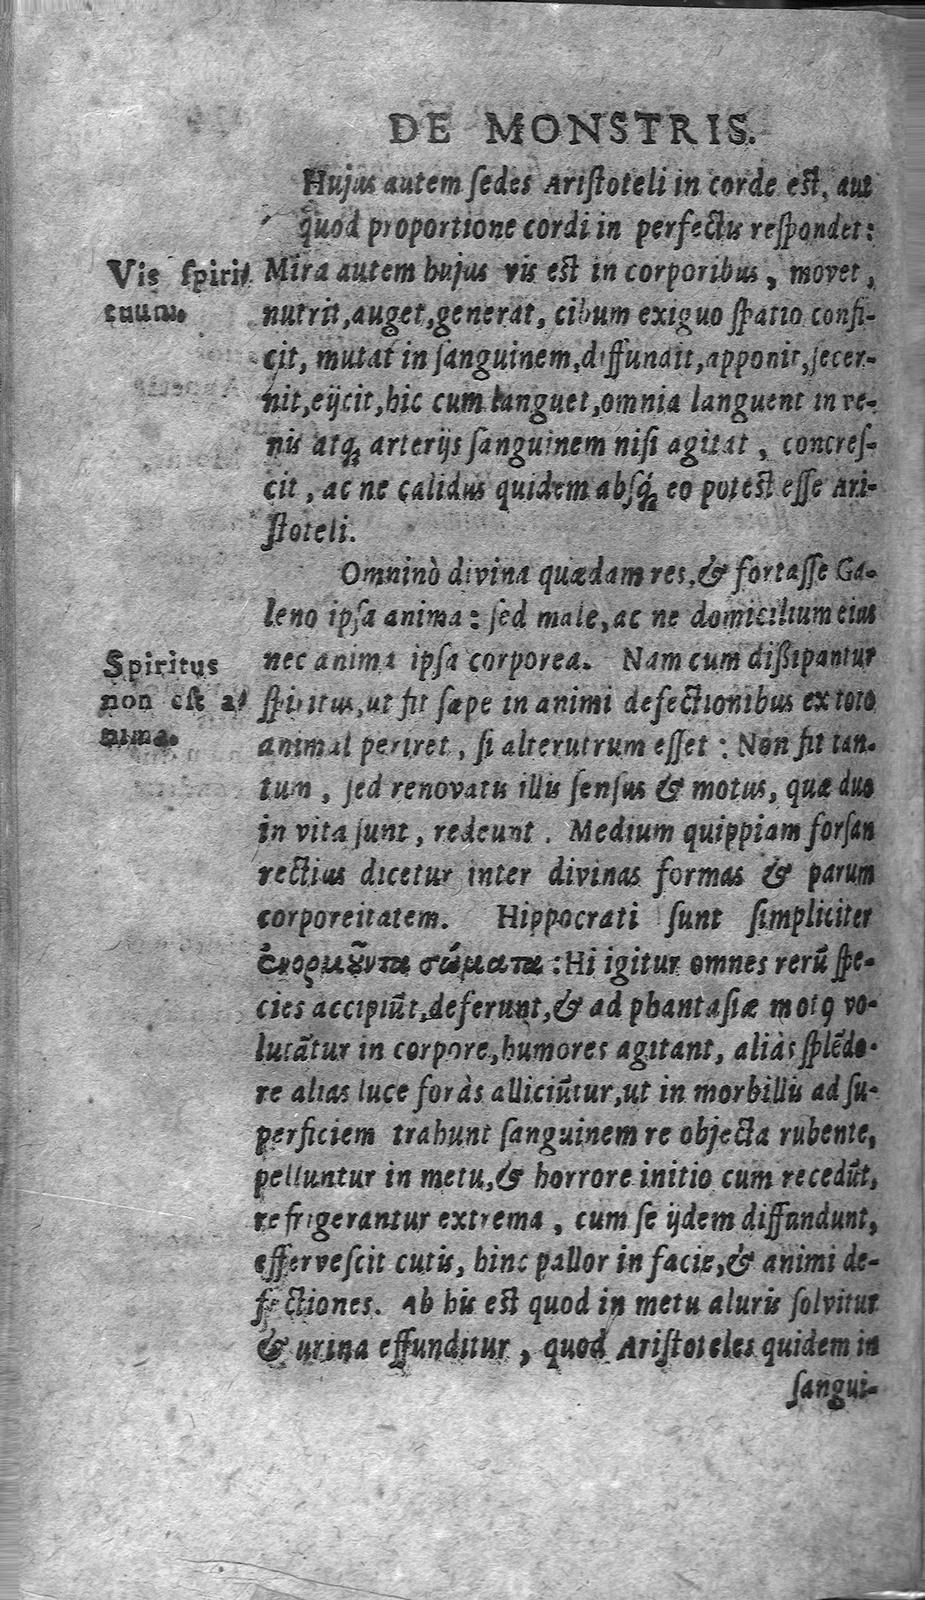 DE MONSTRIS.
Hujus autem sedes Aristoteli in corde est, aut
quod proportione cordi in perfectis respondet:
Vis spiri-
tuum.
Mira autem hujus vis est in corporibus, movet,
nutrit, auget, generat, cibum exiguo spatio confi-
cit, mutat in sanguinem, diffundit, apponit, secer-
nit, eijcit, hic cum languet, omnia languent in ve-
nis atq; arterijs sanguinem nisi agitat, concres-
cit, ac ne calidus quidem absq; eo potest esse Ari-
stoteli.
Omninò divina quædam res, & fortasse Ga-
leno ipsa anima: sed male, ac ne domicilium eius
nec anima ipsa corporea. Nam cum dissipantur
Spiritus
non est a-
nima.
spiritus, ut fit sæpe in animi defectionibus ex toto
animal periret, si alterutrum esset: Non fit tan-
tum, sed renovatis illis sensus & motus, quæ duo
in vita sunt, redeunt. Medium quippiam forsan
rectius dicetur inter divinas formas & parum
corporeitatem. Hippocrati sunt simpliciter
ἐνορμοῦντα σώματα: Hi igitur omnes rerū spe-
cies accipiūt, deferunt, & ad phantasiæ motꝰ vo-
lutātur in corpore, humores agitant, aliàs splēdo-
re alias luce foràs alliciūtur, ut in morbillis ad su-
perficiem trahunt sanguinem re objecta rubente,
pelluntur in metu, & horrore initio cum recedūt,
refrigerantur extrema, cum se ijdem diffundunt,
effervescit cutis, hinc pallor in facie, & animi de-
fectiones. Ab his est quod in metu alvus solvitur
& urina effunditur, quod Aristoteles quidem in
sangui-